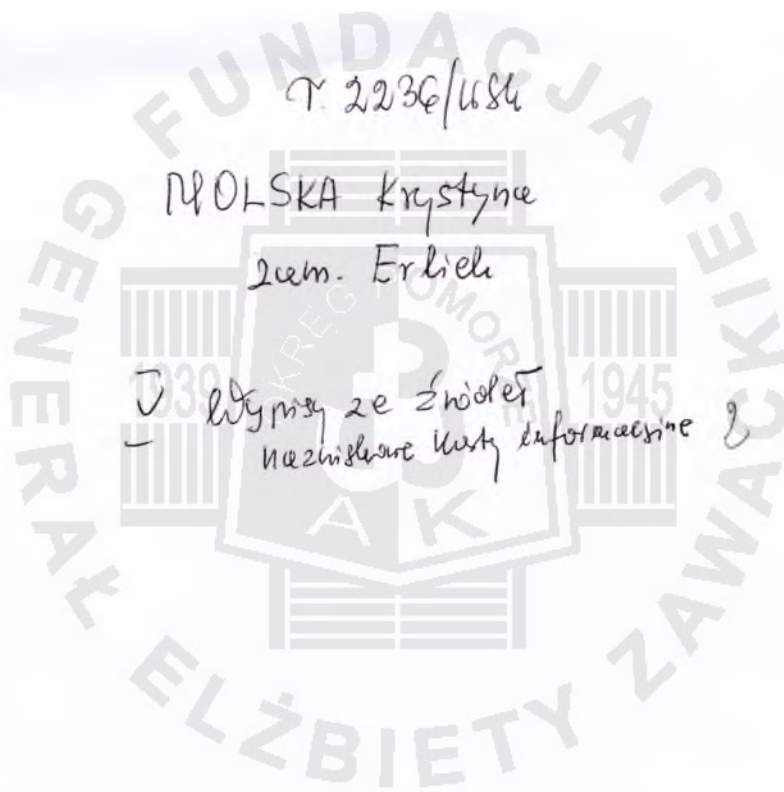 T. 2236/WSK
MOLSKA Krystyna
zam. Erlich
V Wypisy ze źródeł
nazwiskowe karty informacyjne 2
FUNDACJA GENERAŁ ELŻBIETY ZAWACKIEJ
OKRĘG POMORZE
1939 1945
AK